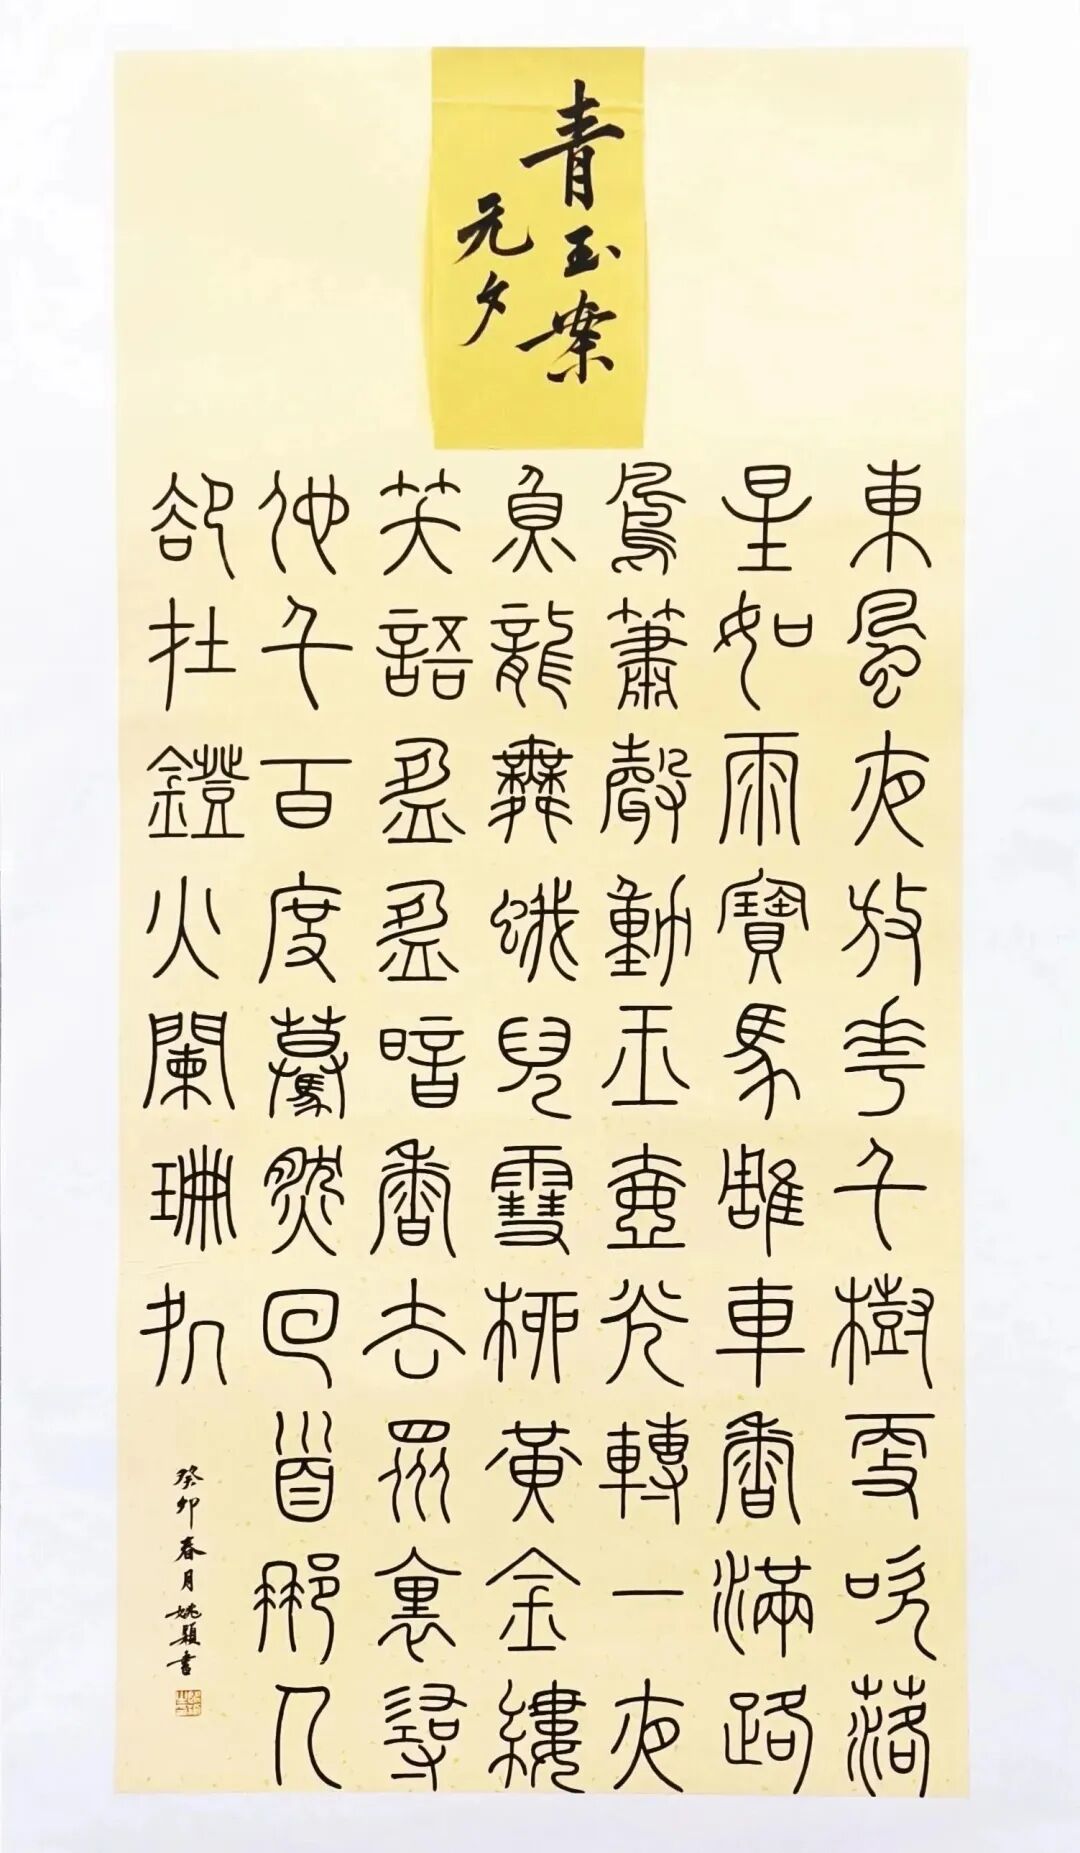 青玉案
元夕
東風夜放花千樹更吹落
星如雨寶馬雕車香滿路
鳳簫聲動玉壺光轉一夜
魚龍舞蛾兒雪柳黃金縷
笑語盈盈暗香去眾裏尋
他千百度驀然回首那人
卻在鐙火闌珊處
癸卯春月姚穎書